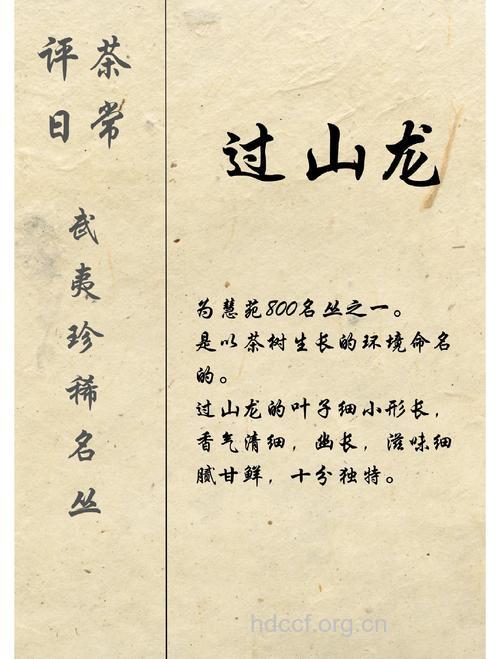 评茶
日常
武夷珍稀名丛
过山龙
为慧苑800名丛之一。
是以茶树生长的环境命名
的。
过山龙的叶子细小形长，
香气清细，幽长，滋味细
腻甘鲜，十分独特。
hdccf.org.cn